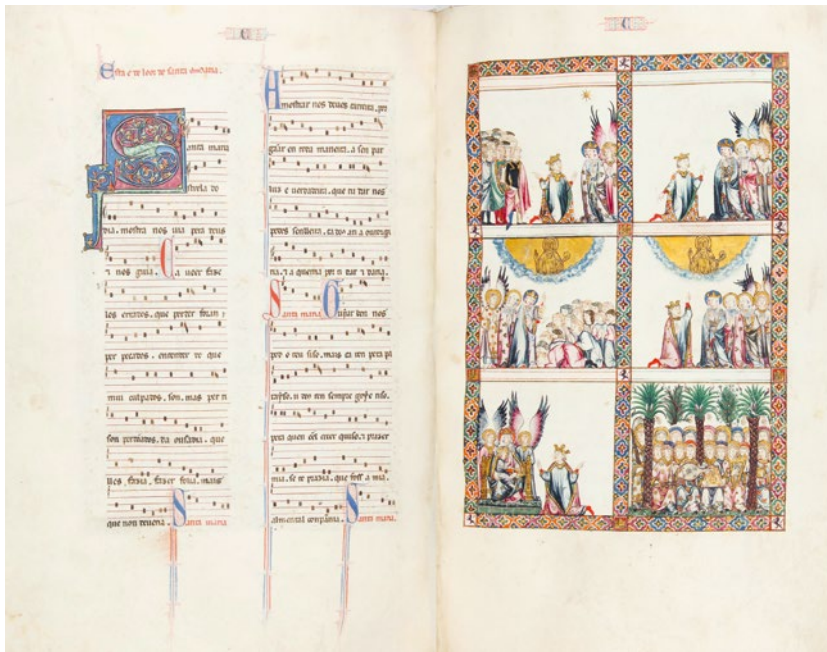 C
Esta e de loor de santa maria.
Santa maria
strela do
dia. mostra nos uia pera deus
τ nos guia. Ca ueer faze
los errados. que perder foran
per pecados. entender de que
mui culpados. son. mas per ti
son perdõados. da ousadia. que
lles. fazia. fazer folia. mais
que non deueria. Santa maria
Amostrar nos deues carreira. por
gãar en toda maneira. a sen par
luz e uerdadeira. que tu dar nos
podes senlleira. ca
ria. τ a querria por ti dar τ daria.
Santa maria. Guyar ben nos
pod o teu siso. mais ca ren pera pa
rayso. u ten sempre goye riso.
pora quen creer quiso. τ prazer
mia. se te prazia. que foss a mia.
en tal conpannia. Santa maria.
C